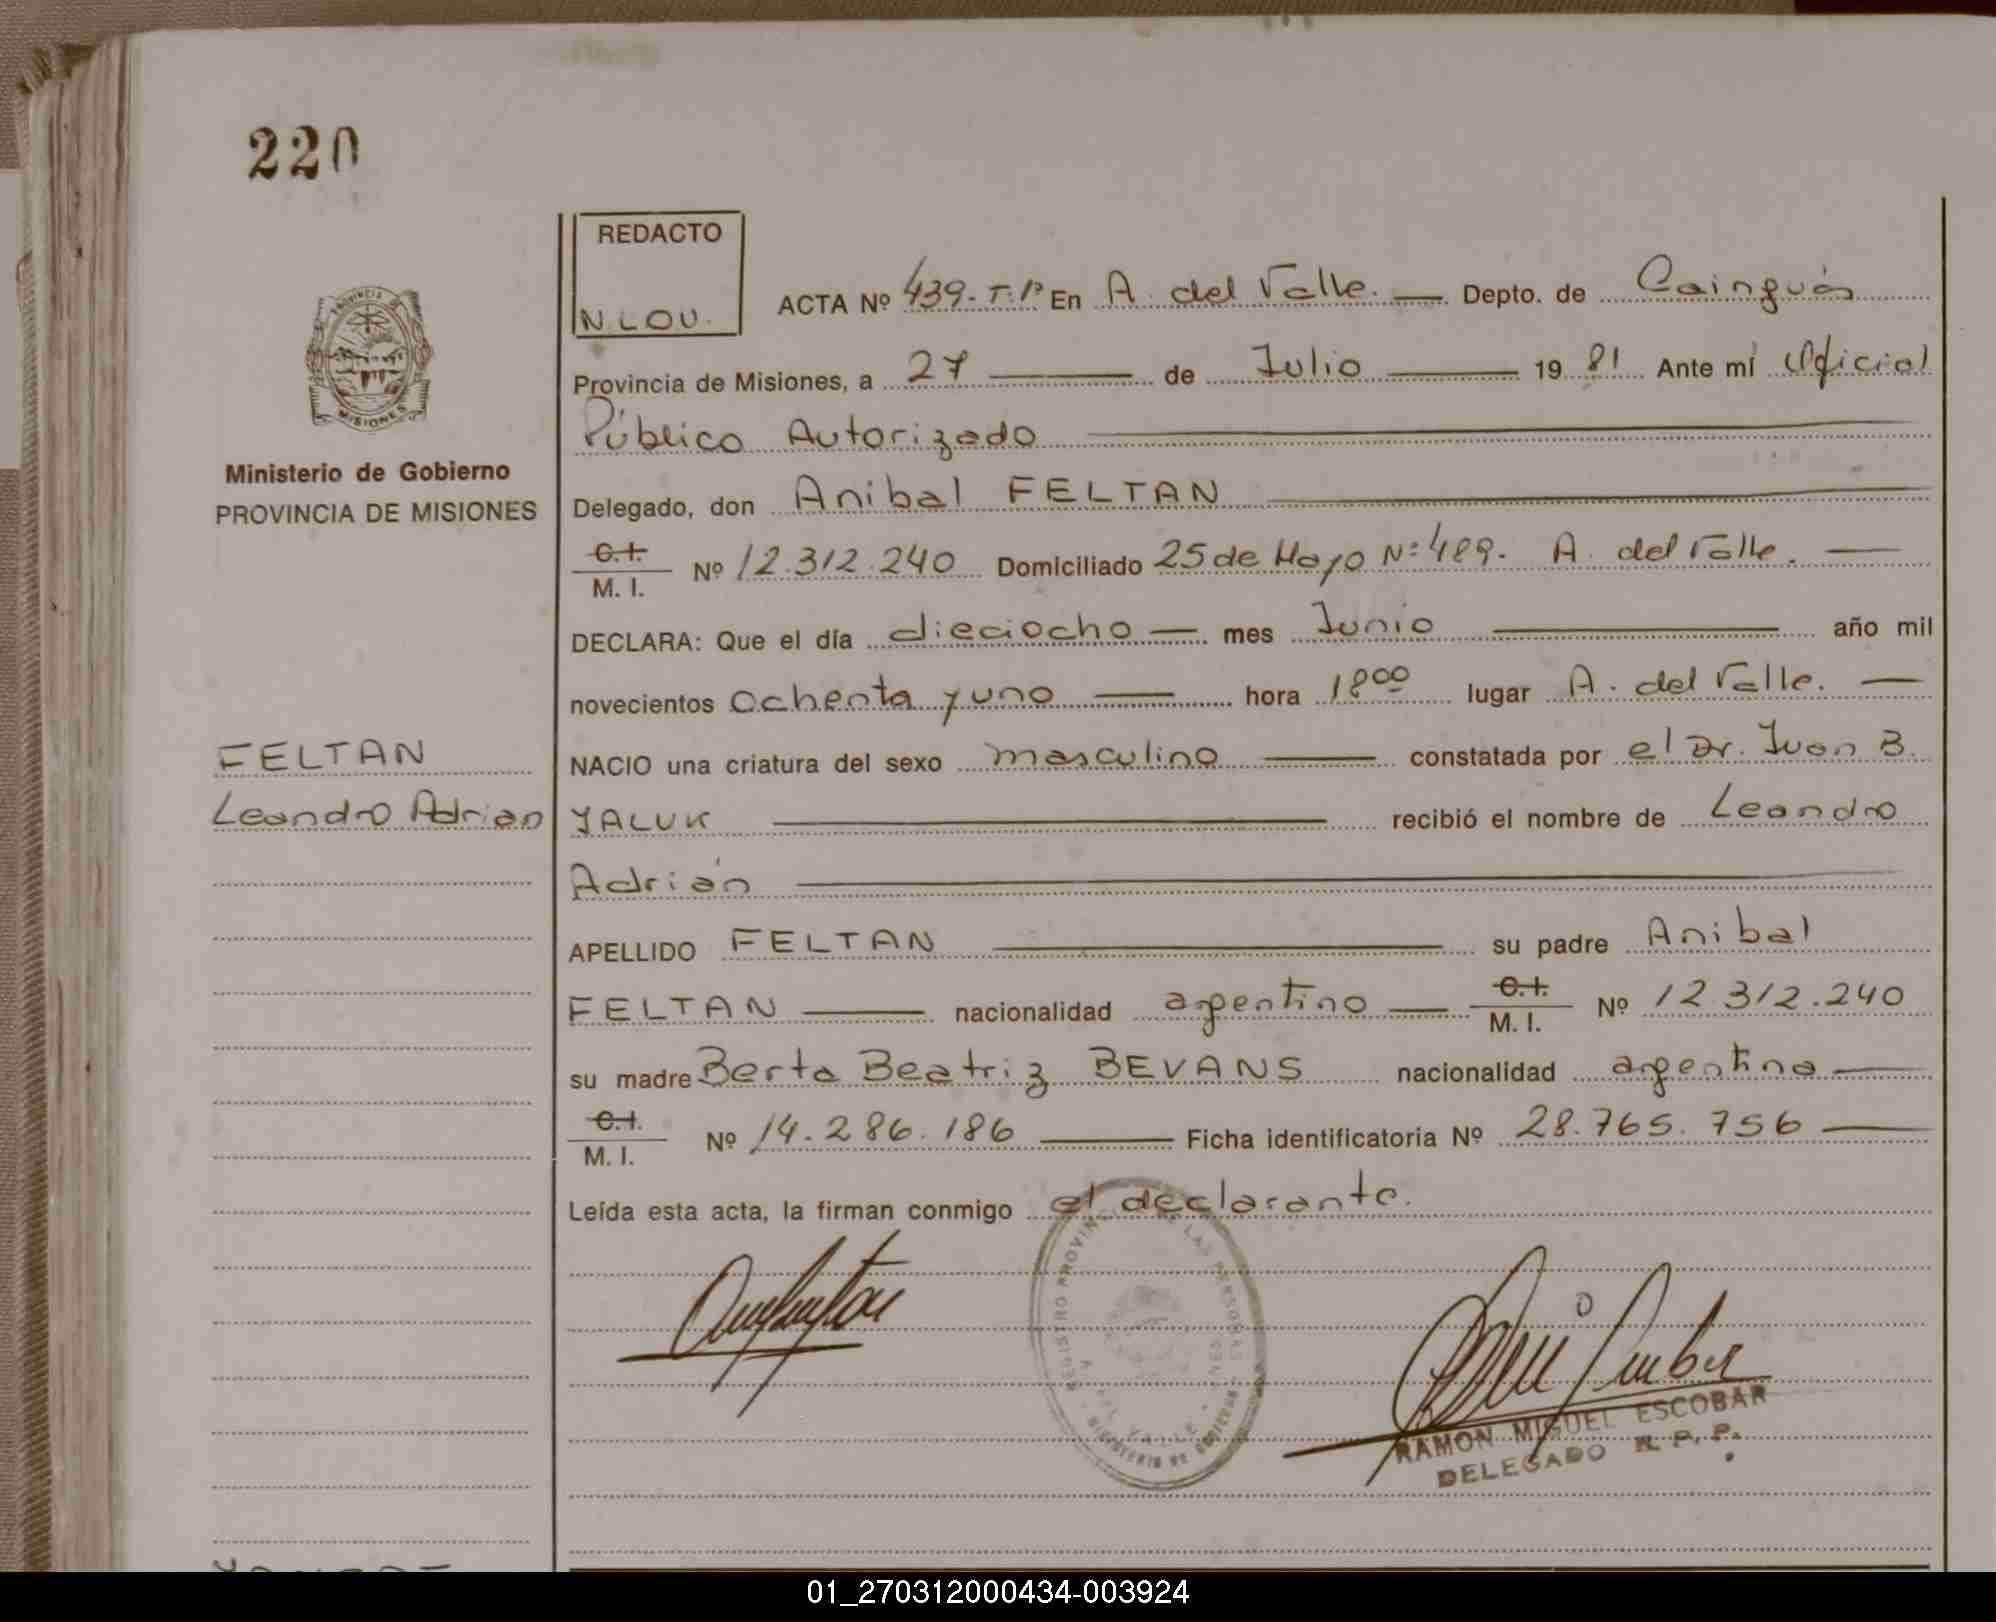 220
REDACTO
N.LOU.
ACTA Nº 439-T.1º En A. del Valle. Depto. de Cainguás
Provincia de Misiones, a 27 de Julio 1981 Ante mí Oficial
Público Autorizado
MISIONES
Ministerio de Gobierno
PROVINCIA DE MISIONES
Delegado, don Anibal FELTAN
C.I.
M. I. Nº 12.312.240 Domiciliado 25 de Mayo Nº 489. A. del Valle.
DECLARA: Que el día dieciocho mes Junio año mil
novecientos ochenta y uno hora 18⁰⁰ lugar A. del Valle.
FELTAN
Leandro Adrian
NACIO una criatura del sexo masculino constatada por el Dr. Juan B.
YALUK recibió el nombre de Leandro
Adrián
APELLIDO FELTAN su padre Anibal
FELTAN nacionalidad argentino C.I. M. I. Nº 12.312.240
su madre Berta Beatriz BEVANS nacionalidad argentina
C.I.
M. I. Nº 14.286.186 Ficha identificatoria Nº 28.765.756
Leída esta acta, la firman conmigo el declarante.
RAMON MIGUEL ESCOBAR
DELEGADO R. P. P.
01_270312000434-003924